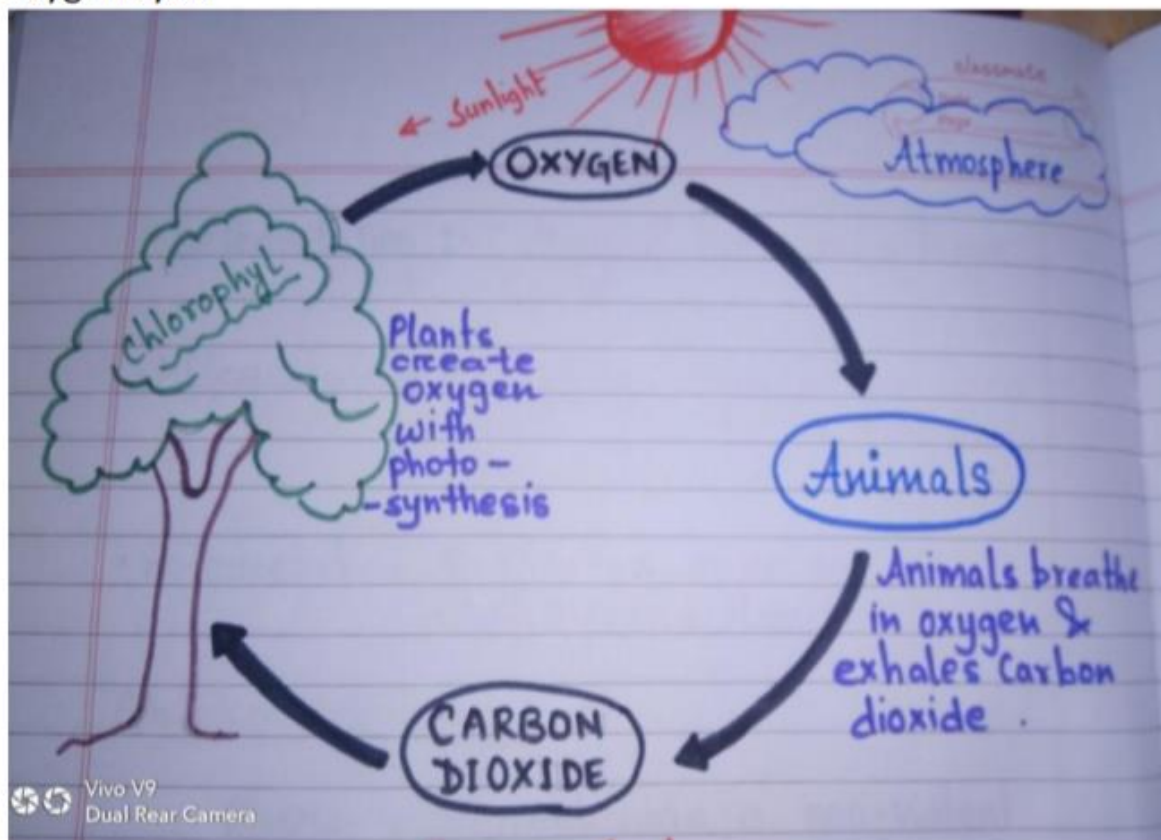 classmate
← Sunlight
OXYGEN
Atmosphere
chlorophyl
Plants
create
oxygen
with
photo -
-synthesis
Animals
Animals breathe
in oxygen &
exhales Carbon
dioxide .
CARBON
DIOXIDE
Vivo V9
Dual Rear Camera